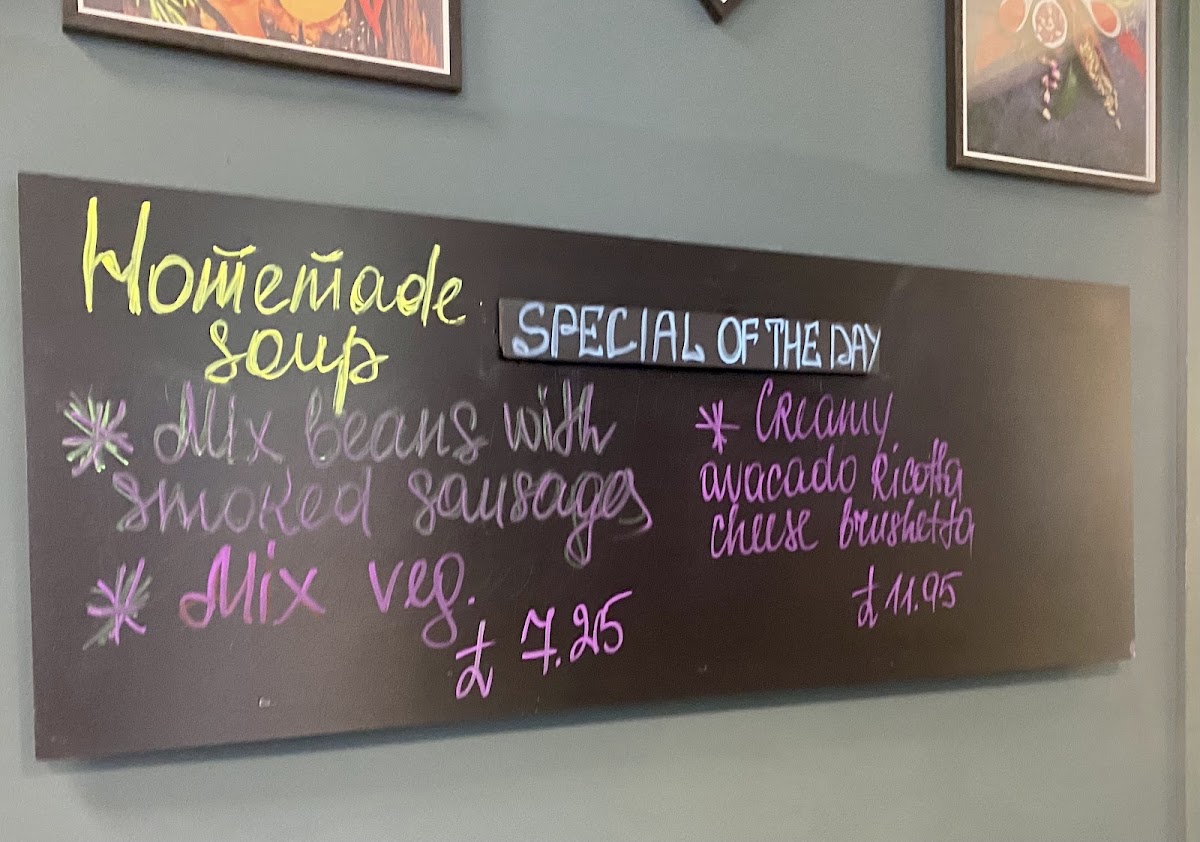 Homemade
soup
* Mix beans with
smoked sausages
* Mix veg.
£ 7.25
SPECIAL OF THE DAY
* Creamy
avacado Ricotta
cheese brushetta
£ 11.95